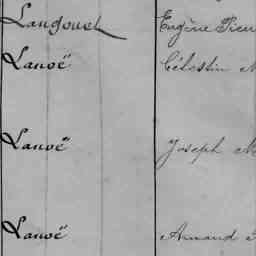 Langouet Eugène
Lanoë Célestin
Lanoë Joseph
Lanoë Armand